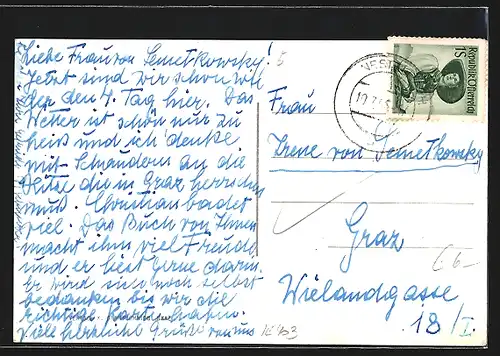 Liebe Frau von Semetkowsky!
Jetzt sind wir schon wie
der den 4. Tag hier. Das
Wetter ist schön nur zu
heiß und ich denke
mit Schaudern an die
Hitze die in Graz herrschen
muß. Christian badet
viel. Das Buch von Ihnen
macht ihm viel Freude
und er liest gerne darin.
Er wird sich noch selbst
bedanken bis wir die
richtige Karte haben.
Viele herzliche Grüße von uns
Frau
Irene von Semetkowsky
Graz
Wielandgasse
18/I.
1S
Republik Österreich
6-